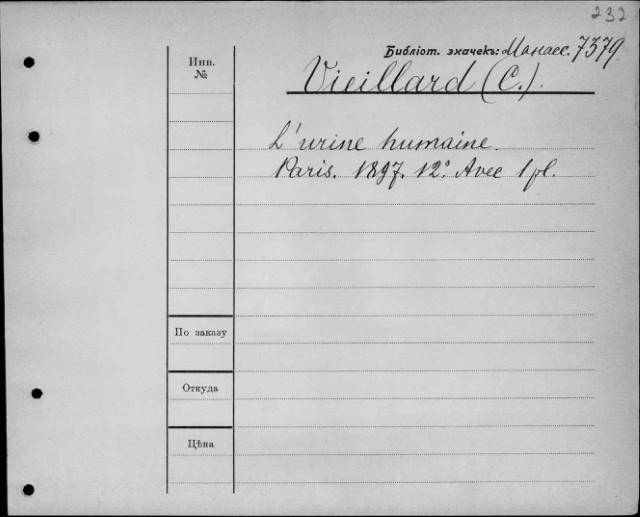 232
Библіот. значекъ: Манасс. 7379.
Инв. №
Vieillard (C.).
L'urine humaine.
Paris. 1897. 12°. Avec 1 pl.
По заказу
Откуда
Цѣна